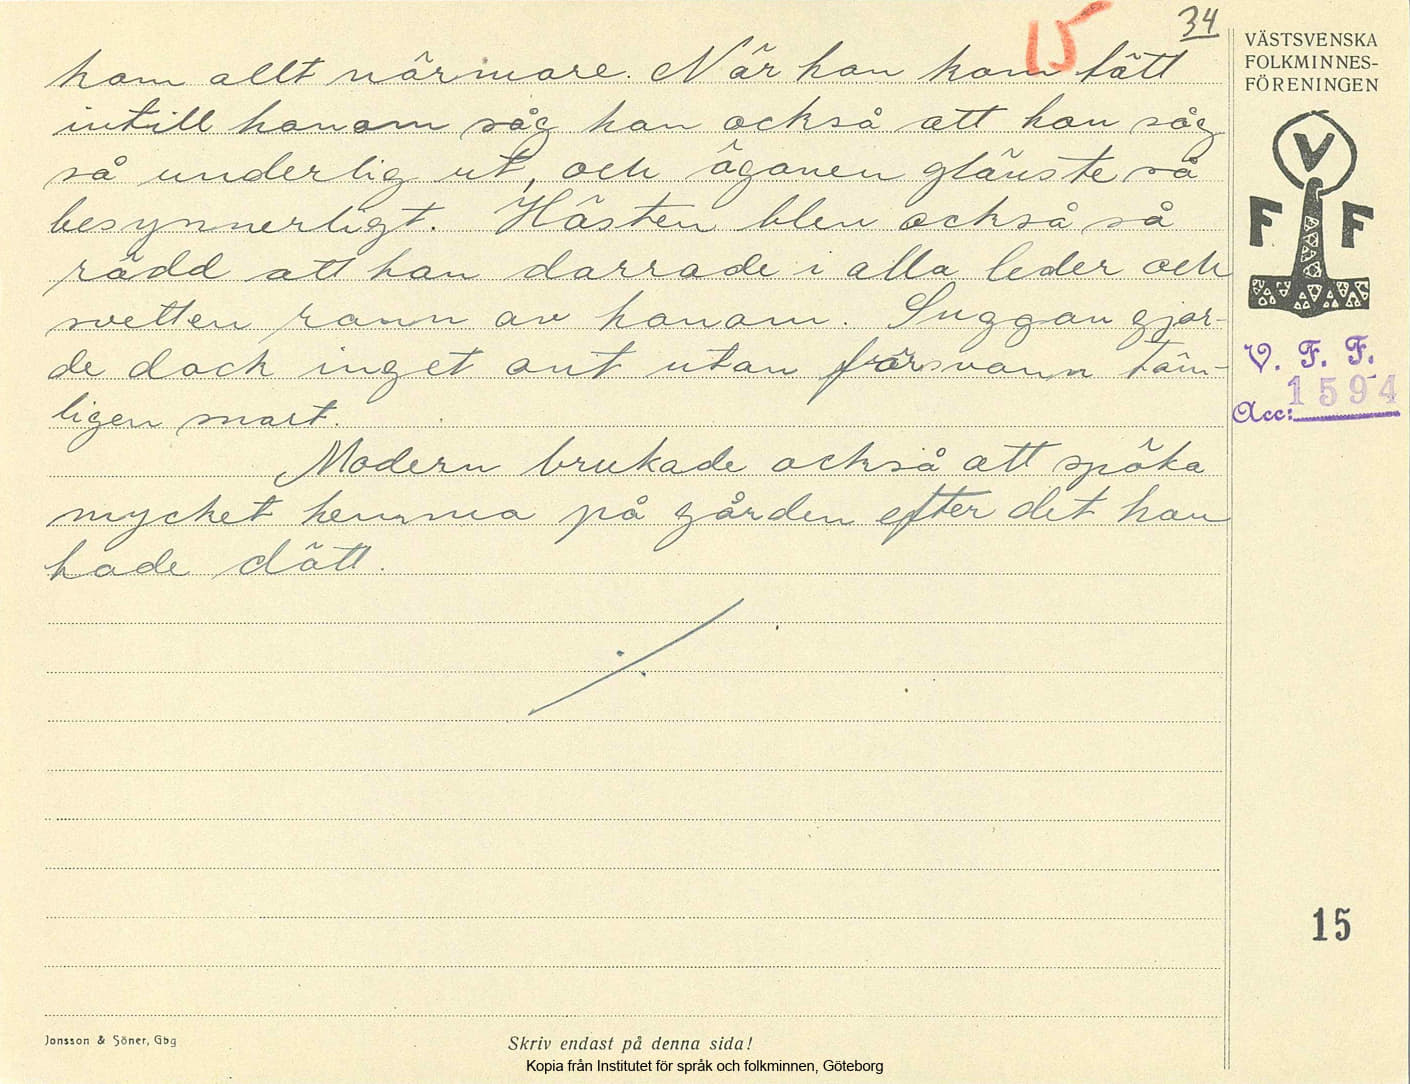 34
15
VÄSTSVENSKA
FOLKMINNES-
FÖRENINGEN
V
F F
V. F. F.
Acc: 1594
kom allt närmare. När han kom tätt
intill honom såg han också att hon såg
så underlig ut, och ögonen glänste så
besynnerligt. Hästen blev också så
rädd att han darrade i alla leder och
svetten rann av honom. Suggan gjor-
de dock inget ont utan försvann täm-
ligen snart.
Modern brukade också att spöka
mycket hemma på gården efter det hon
hade dött.
15
Jonsson & Söner, Gbg
Skriv endast på denna sida!
Kopia från Institutet för språk och folkminnen, Göteborg